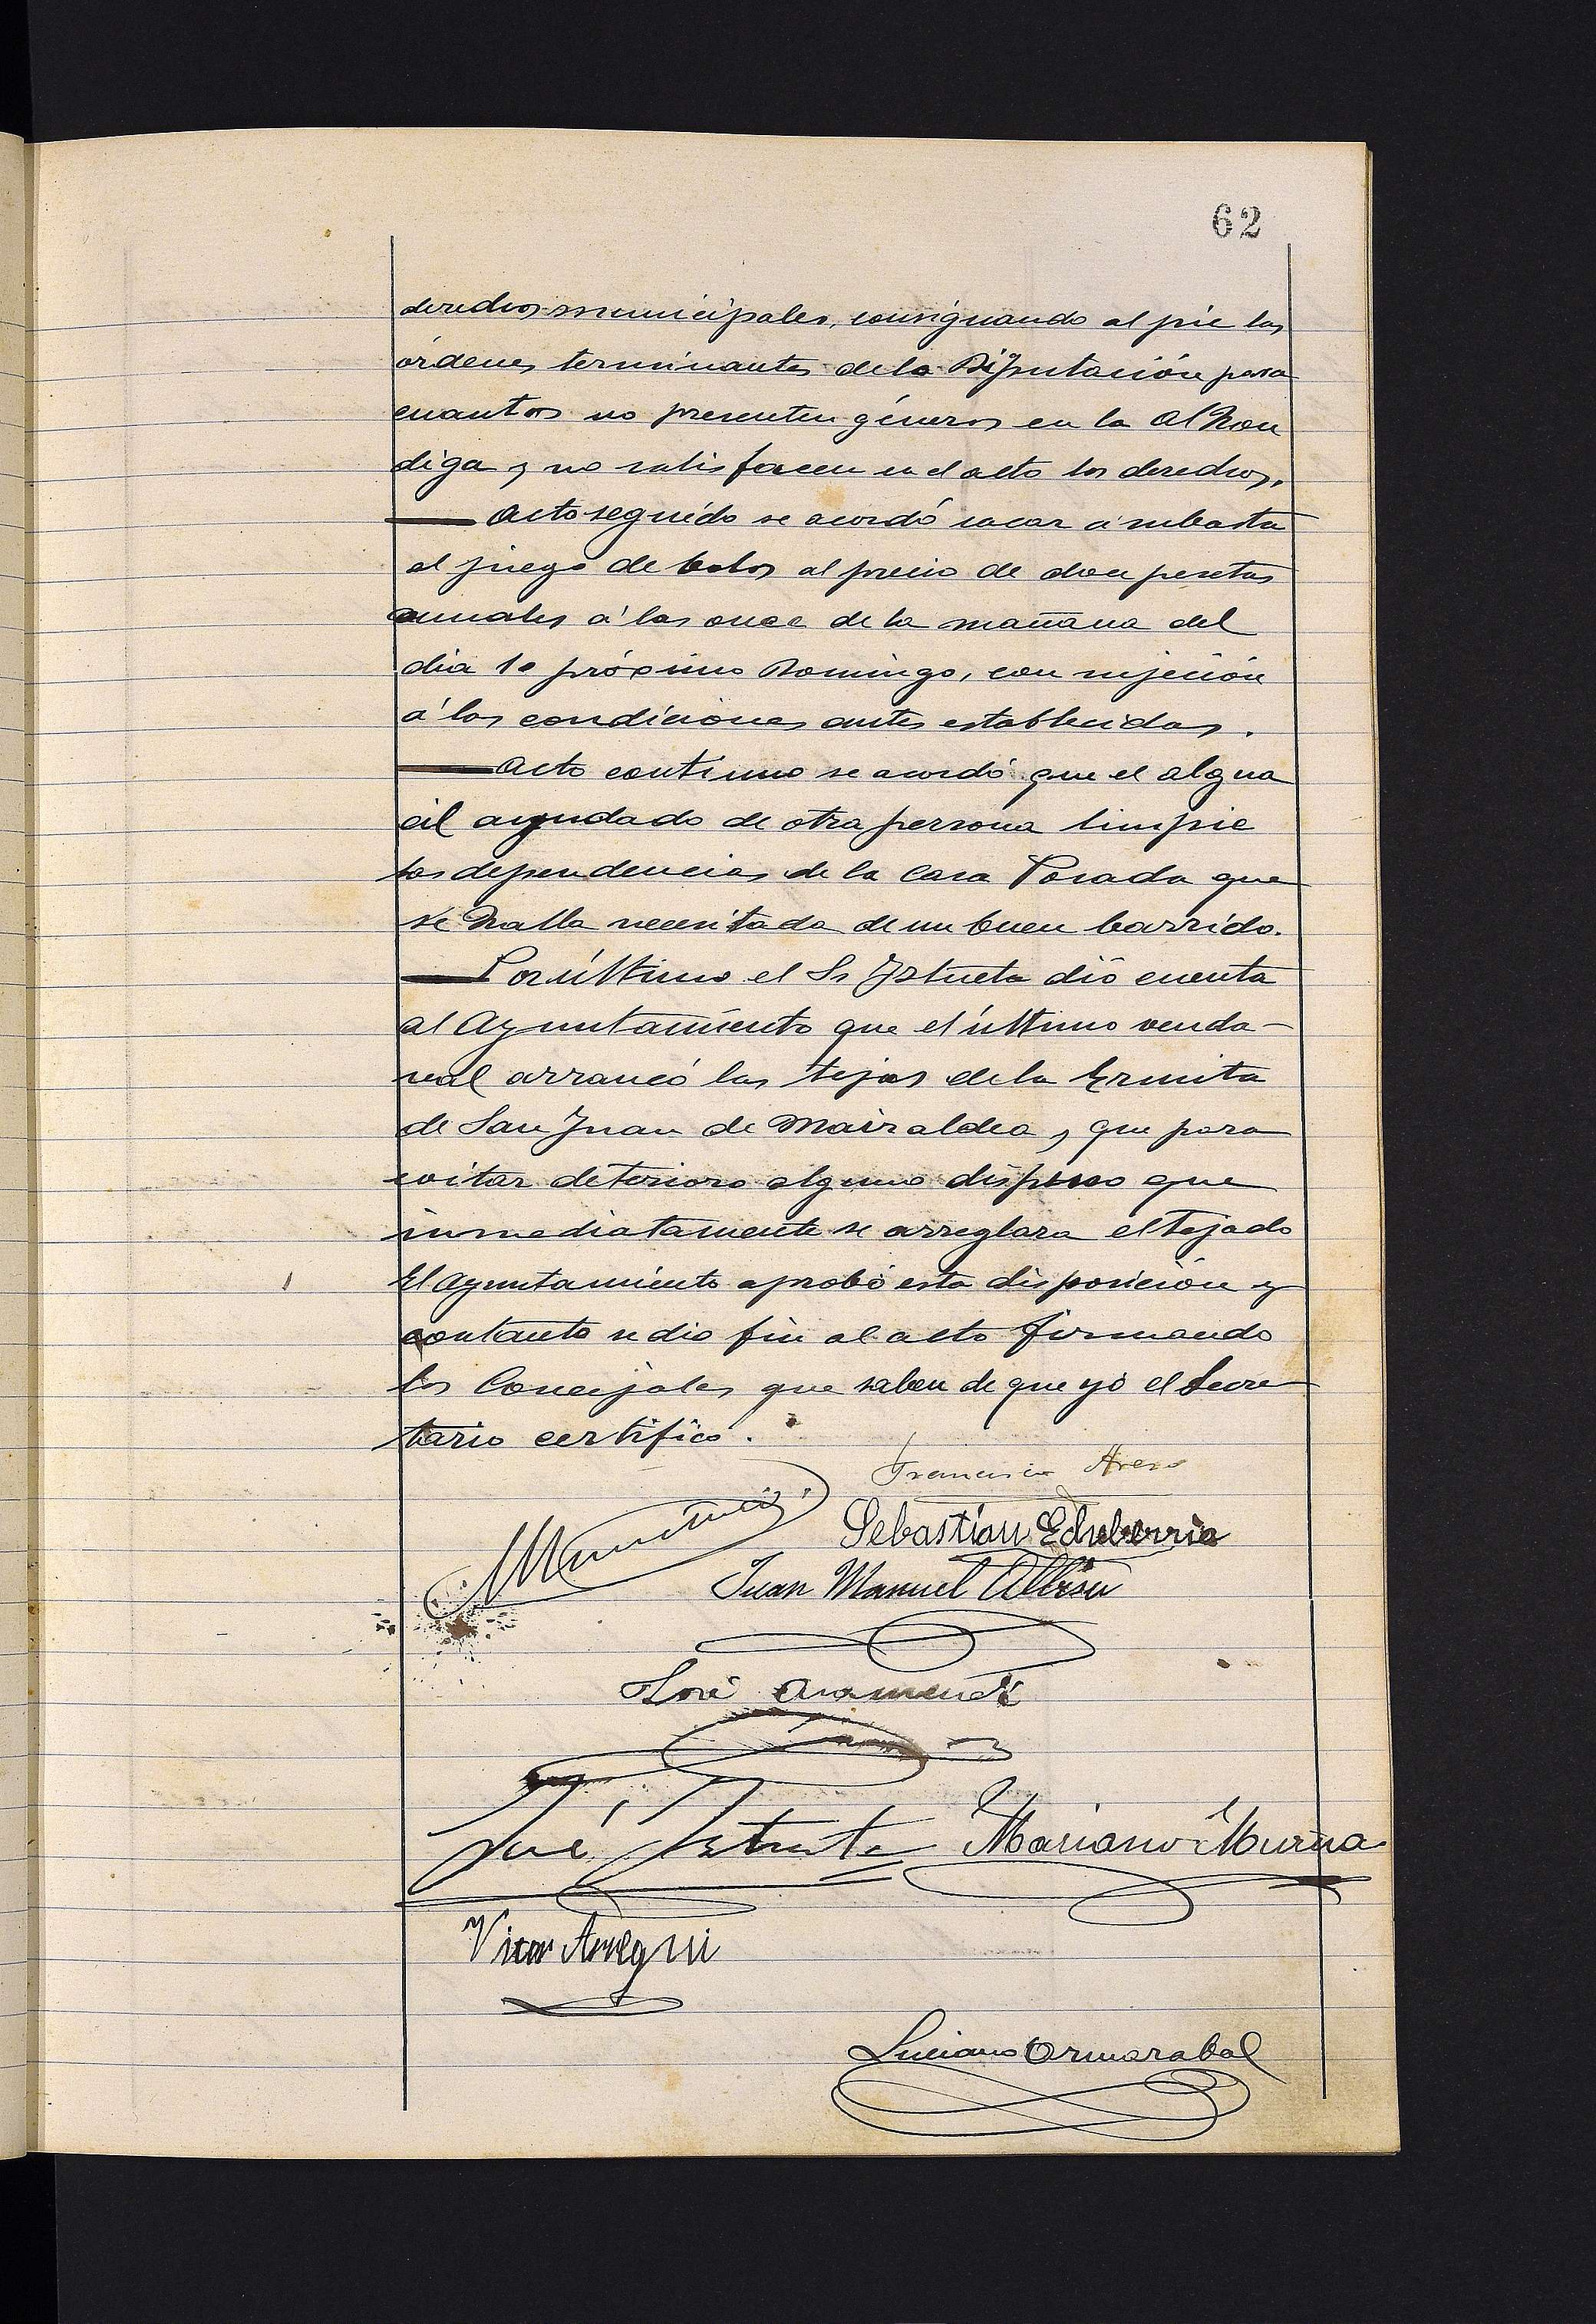 62
derechos municipales, consignando al pie las
órdenes terminantes de la Diputación para
cuantos no presenten géneros en la Alhon
diga y no satisfacen en el acto los derechos.
Acto seguido se acordó sacar á subasta
el juego de bolos al precio de doce pesetas
anuales á las once de la mañana del
dia 1o próximo Domingo, con sujeción
á las condiciones antes establecidas.
Acto continuo se acordó que el algua
cil ayudado de otra persona limpie
las dependencias de la Casa Posada que
se halla necesitada de un buen barrido.
Por último el Sr Iztueta dió cuenta
al Ayuntamiento que el último venda-
val arrancó las tejas de la Ermita
de San Juan de Mairaldea, que para
evitar deterioro alguno dispuso que
inmediatamente se arreglara el tejado
El Ayuntamiento aprobó esta disposición y
contanto se dio fin al acto firmando
los Concejales que saben de que yó el Secre
tario certifico.
Francisco
Sebastian Echeberria
Juan Manuel Albisu
José Aramendi
José Iztueta Mariano Murua
Victor Arregui
Luciano Ormazabal